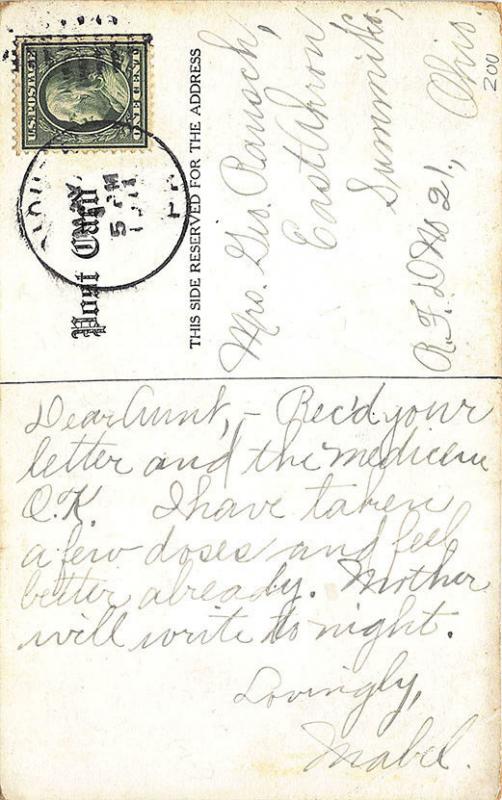 U.S. POSTAGE
ONE CENT
MAY
5
Post Card
THIS SIDE RESERVED FOR THE ADDRESS
Mrs. Geo. Rausch,
East Akron
Summit Co,
R.F.D No 21, Ohio.
200
Dear Aunt, - Rec'd your
letter and the medicine
O.K. I have taken
a few doses and feel
better already. Mother
will write to night.
Lovingly,
Mabel.